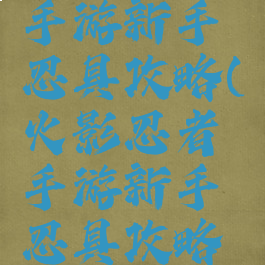 手游新手
忍具攻略(
火影忍者
手游新手
忍具攻略